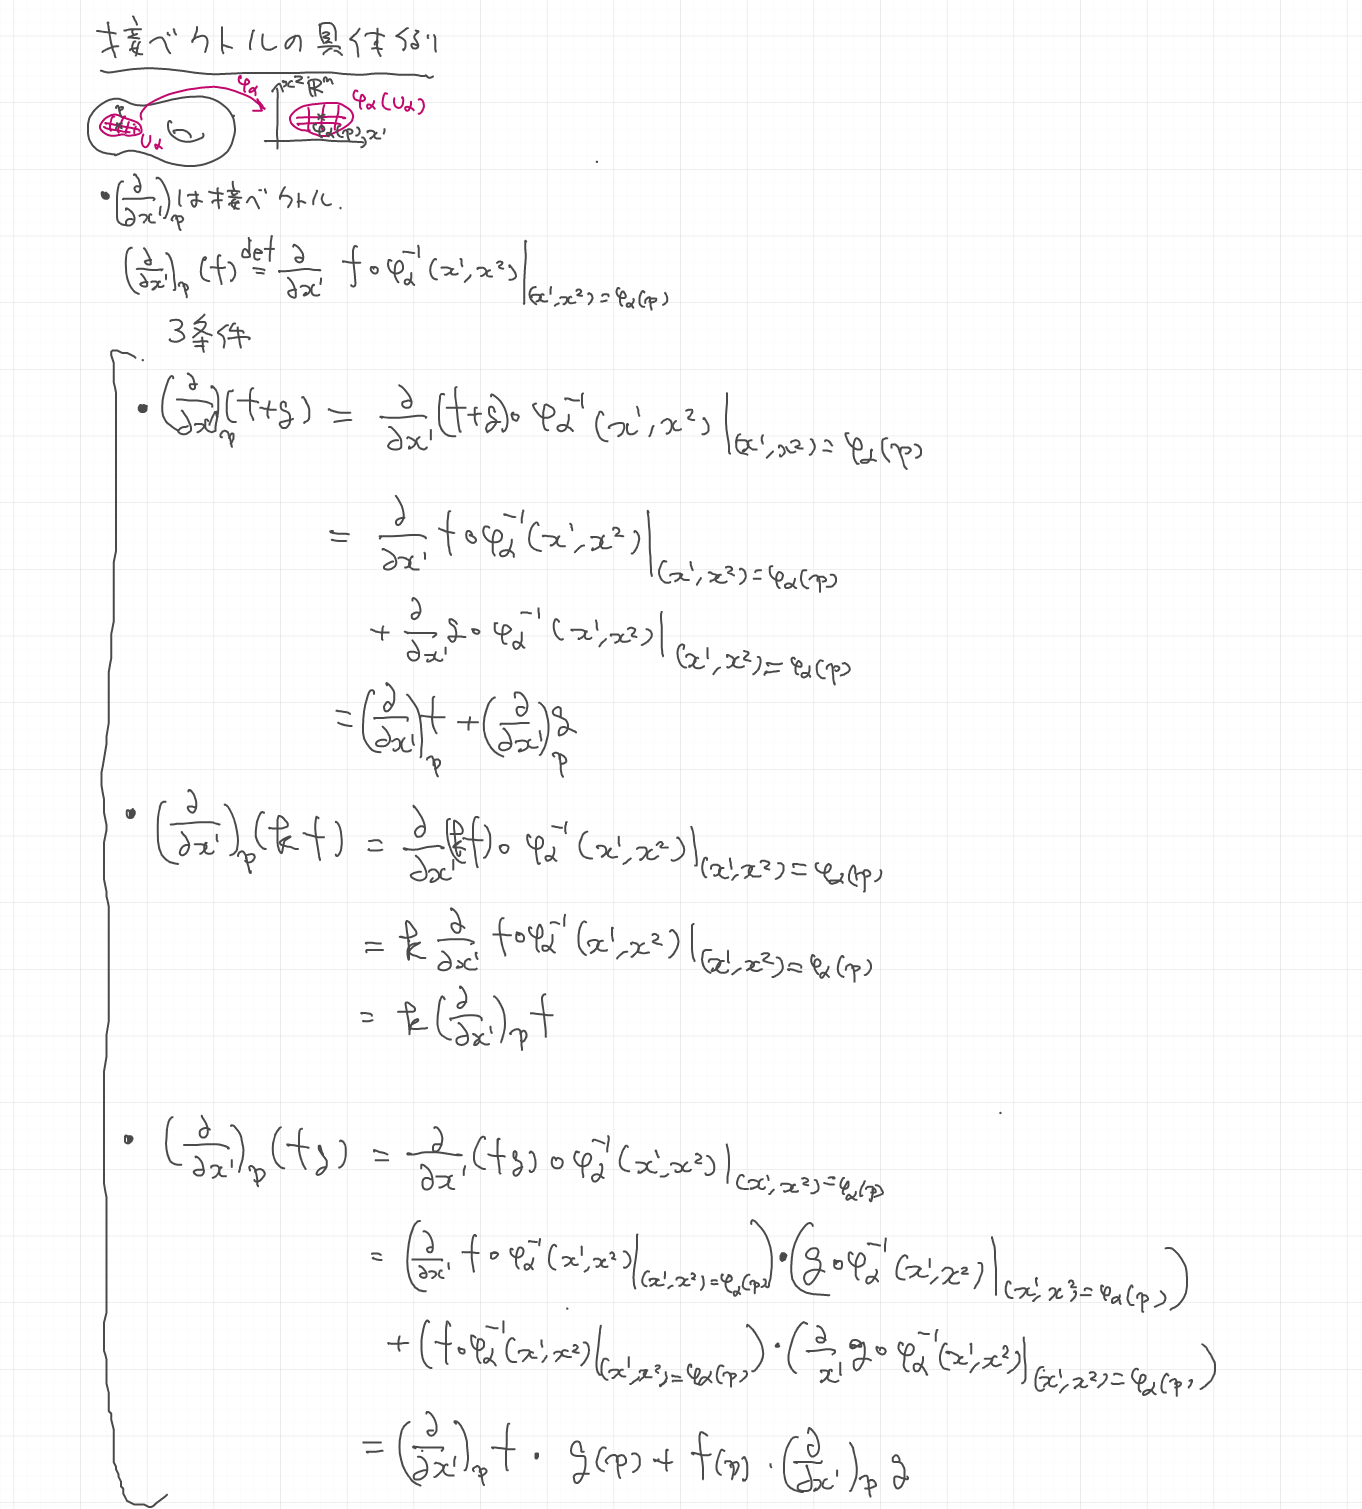 接ベクトルの具体例
φα x² ℝⁿ φα(Uα)
p Uα φα(p) x¹
・(∂/∂x¹)p は接ベクトル.
(∂/∂x¹)p (f) def= ∂/∂x¹ f∘φα⁻¹(x¹,x²)|(x¹,x²)=φα(p)
3条件
・(∂/∂x¹)p (f+g) = ∂/∂x¹ (f+g)∘φα⁻¹(x¹,x²)|(x¹,x²)=φα(p)
= ∂/∂x¹ f∘φα⁻¹(x¹,x²)|(x¹,x²)=φα(p)
+ ∂/∂x¹ g∘φα⁻¹(x¹,x²)|(x¹,x²)=φα(p)
= (∂/∂x¹)p f + (∂/∂x¹)p g
・(∂/∂x¹)p (kf) = ∂/∂x¹ (kf)∘φα⁻¹(x¹,x²)|(x¹,x²)=φα(p)
= k ∂/∂x¹ f∘φα⁻¹(x¹,x²)|(x¹,x²)=φα(p)
= k (∂/∂x¹)p f
・(∂/∂x¹)p (fg) = ∂/∂x¹ (fg)∘φα⁻¹(x¹,x²)|(x¹,x²)=φα(p)
= (∂/∂x¹ f∘φα⁻¹(x¹,x²)|(x¹,x²)=φα(p))・(g∘φα⁻¹(x¹,x²)|(x¹,x²)=φα(p))
+ (f∘φα⁻¹(x¹,x²)|(x¹,x²)=φα(p))・(∂/x¹ g∘φα⁻¹(x¹,x²)|(x¹,x²)=φα(p))
= (∂/∂x¹)p f・g(p) + f(p)・(∂/∂x¹)p g